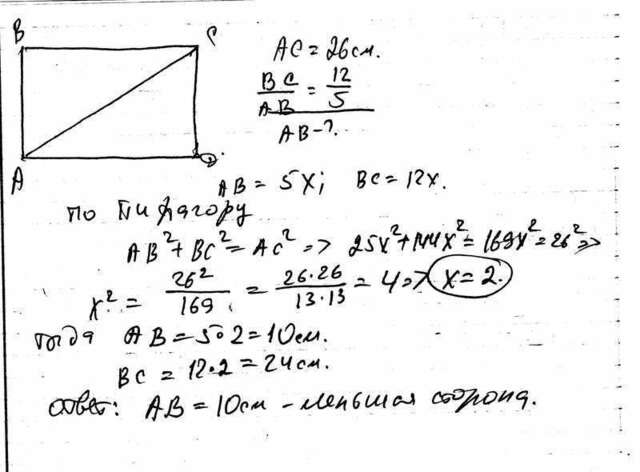 B C
AC = 26см.
BC/AB = 12/5
AB - ?
A D.
AB = 5x; BC = 12x.
по Пифагору
AB² + BC² = AC² => 25x² + 144x² = 169x² = 26² =>
x² = 26²/169 = 26·26/13·13 = 4 => x = 2.
тогда AB = 5·2 = 10см.
BC = 12·2 = 24см.
ответ: AB = 10см - меньшая сторона.